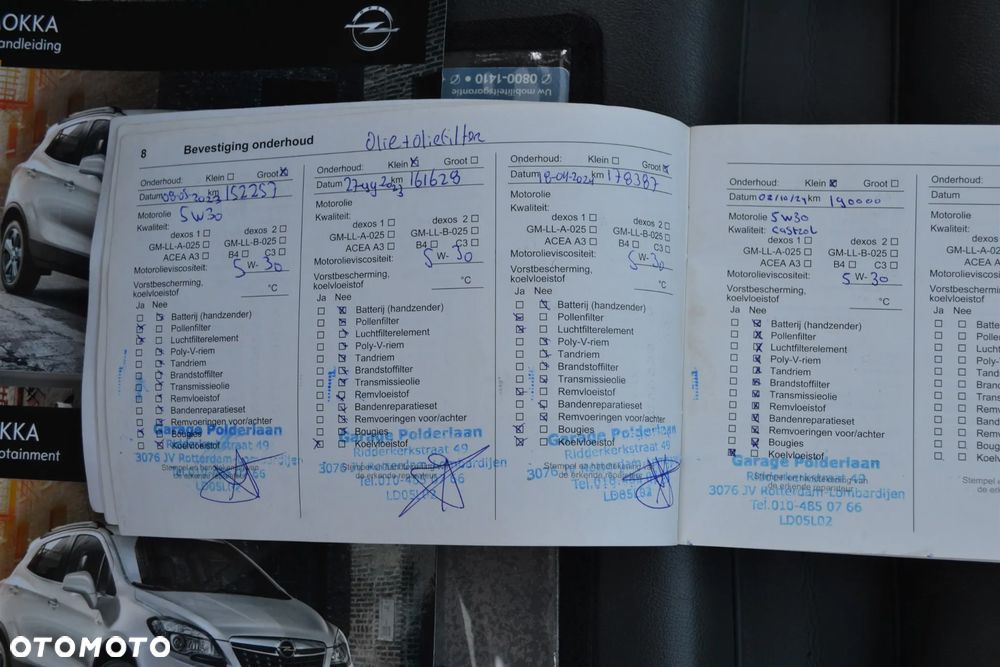 OKKA
andleiding
0800-1410
Uw mobiliteitsgarantie
OKKA
otainment
8 Bevestiging onderhoud
Olie + oliefilter
Onderhoud: Klein Groot
Datum km 152257
Motorolie 5W30
Kwaliteit:
dexos 1 dexos 2
GM-LL-A-025 GM-LL-B-025
ACEA A3 B4 C3
Motorolieviscositeit: 5 W- 30
Vorstbescherming,
koelvloeistof °C
Ja Nee
Batterij (handzender)
Pollenfilter
Luchtfilterelement
Poly-V-riem
Tandriem
Brandstoffilter
Transmissieolie
Remvloeistof
Bandenreparatieset
Remvoeringen voor/achter
Bougies
Koelvloeistof
Garage Polderlaan
Ridderkerkstraat 49
3076 JV Rotterdam-Lombardijen
LD05L02
Onderhoud: Klein Groot
Datum km 161628
Motorolie
Kwaliteit:
dexos 1 dexos 2
GM-LL-A-025 GM-LL-B-025
ACEA A3 B4 C3
Motorolieviscositeit: 5 W- 30
Vorstbescherming,
koelvloeistof °C
Ja Nee
Batterij (handzender)
Pollenfilter
Luchtfilterelement
Poly-V-riem
Tandriem
Brandstoffilter
Transmissieolie
Remvloeistof
Bandenreparatieset
Remvoeringen voor/achter
Bougies
Koelvloeistof
Garage Polderlaan
Ridderkerkstraat 49
LD05L02
Onderhoud: Klein Groot
Datum km 178387
Motorolie
Kwaliteit:
dexos 1 dexos 2
GM-LL-A-025 GM-LL-B-025
ACEA A3 B4 C3
Motorolieviscositeit: 5 W- 30
Vorstbescherming,
koelvloeistof °C
Ja Nee
Batterij (handzender)
Pollenfilter
Luchtfilterelement
Poly-V-riem
Tandriem
Brandstoffilter
Transmissieolie
Remvloeistof
Bandenreparatieset
Remvoeringen voor/achter
Bougies
Koelvloeistof
Garage Polderlaan
Ridderkerkstraat 49
Onderhoud: Klein Groot
Datum 02/10/24 km 190000
Motorolie 5W30
Kwaliteit: Castrol
dexos 1 dexos 2
GM-LL-A-025 GM-LL-B-025
ACEA A3 B4 C3
Motorolieviscositeit: 5 W- 30
Vorstbescherming,
koelvloeistof °C
Ja Nee
Batterij (handzender)
Pollenfilter
Luchtfilterelement
Poly-V-riem
Tandriem
Brandstoffilter
Transmissieolie
Remvloeistof
Bandenreparatieset
Remvoeringen voor/achter
Bougies
Koelvloeistof
Garage Polderlaan
3076 JV Rotterdam-Lombardijen
Tel.010-485 07 66
LD05L02
Onderhoud:
Datum
Motorolie
Kwaliteit:
GM-LL-A
ACE
Motorolieviscos
Vorstbeschermi
koelvloeistof
Ja Nee
Batter
Polle
Luch
Poly
Tand
Bran
Tran
Rem
Ban
Rem
Bou
Koe
Stempel
de
OTOMOTO